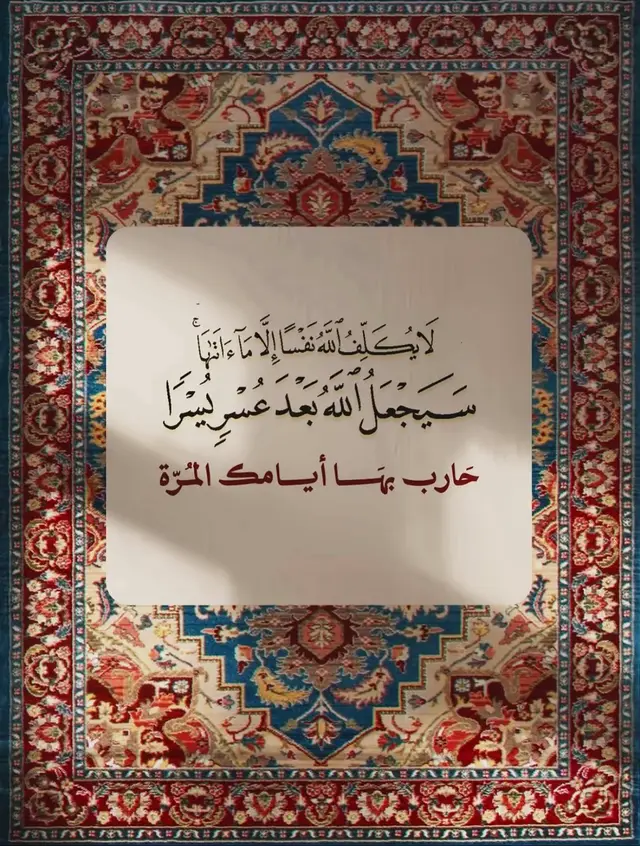 لَا يُكَلِّفُ ٱللَّهُ نَفْسًا إِلَّا مَآ ءَاتَىٰهَا ۚ
سَيَجْعَلُ ٱللَّهُ بَعْدَ عُسْرٍ يُسْرًا
حَارب بهَا أيامك المُرّة